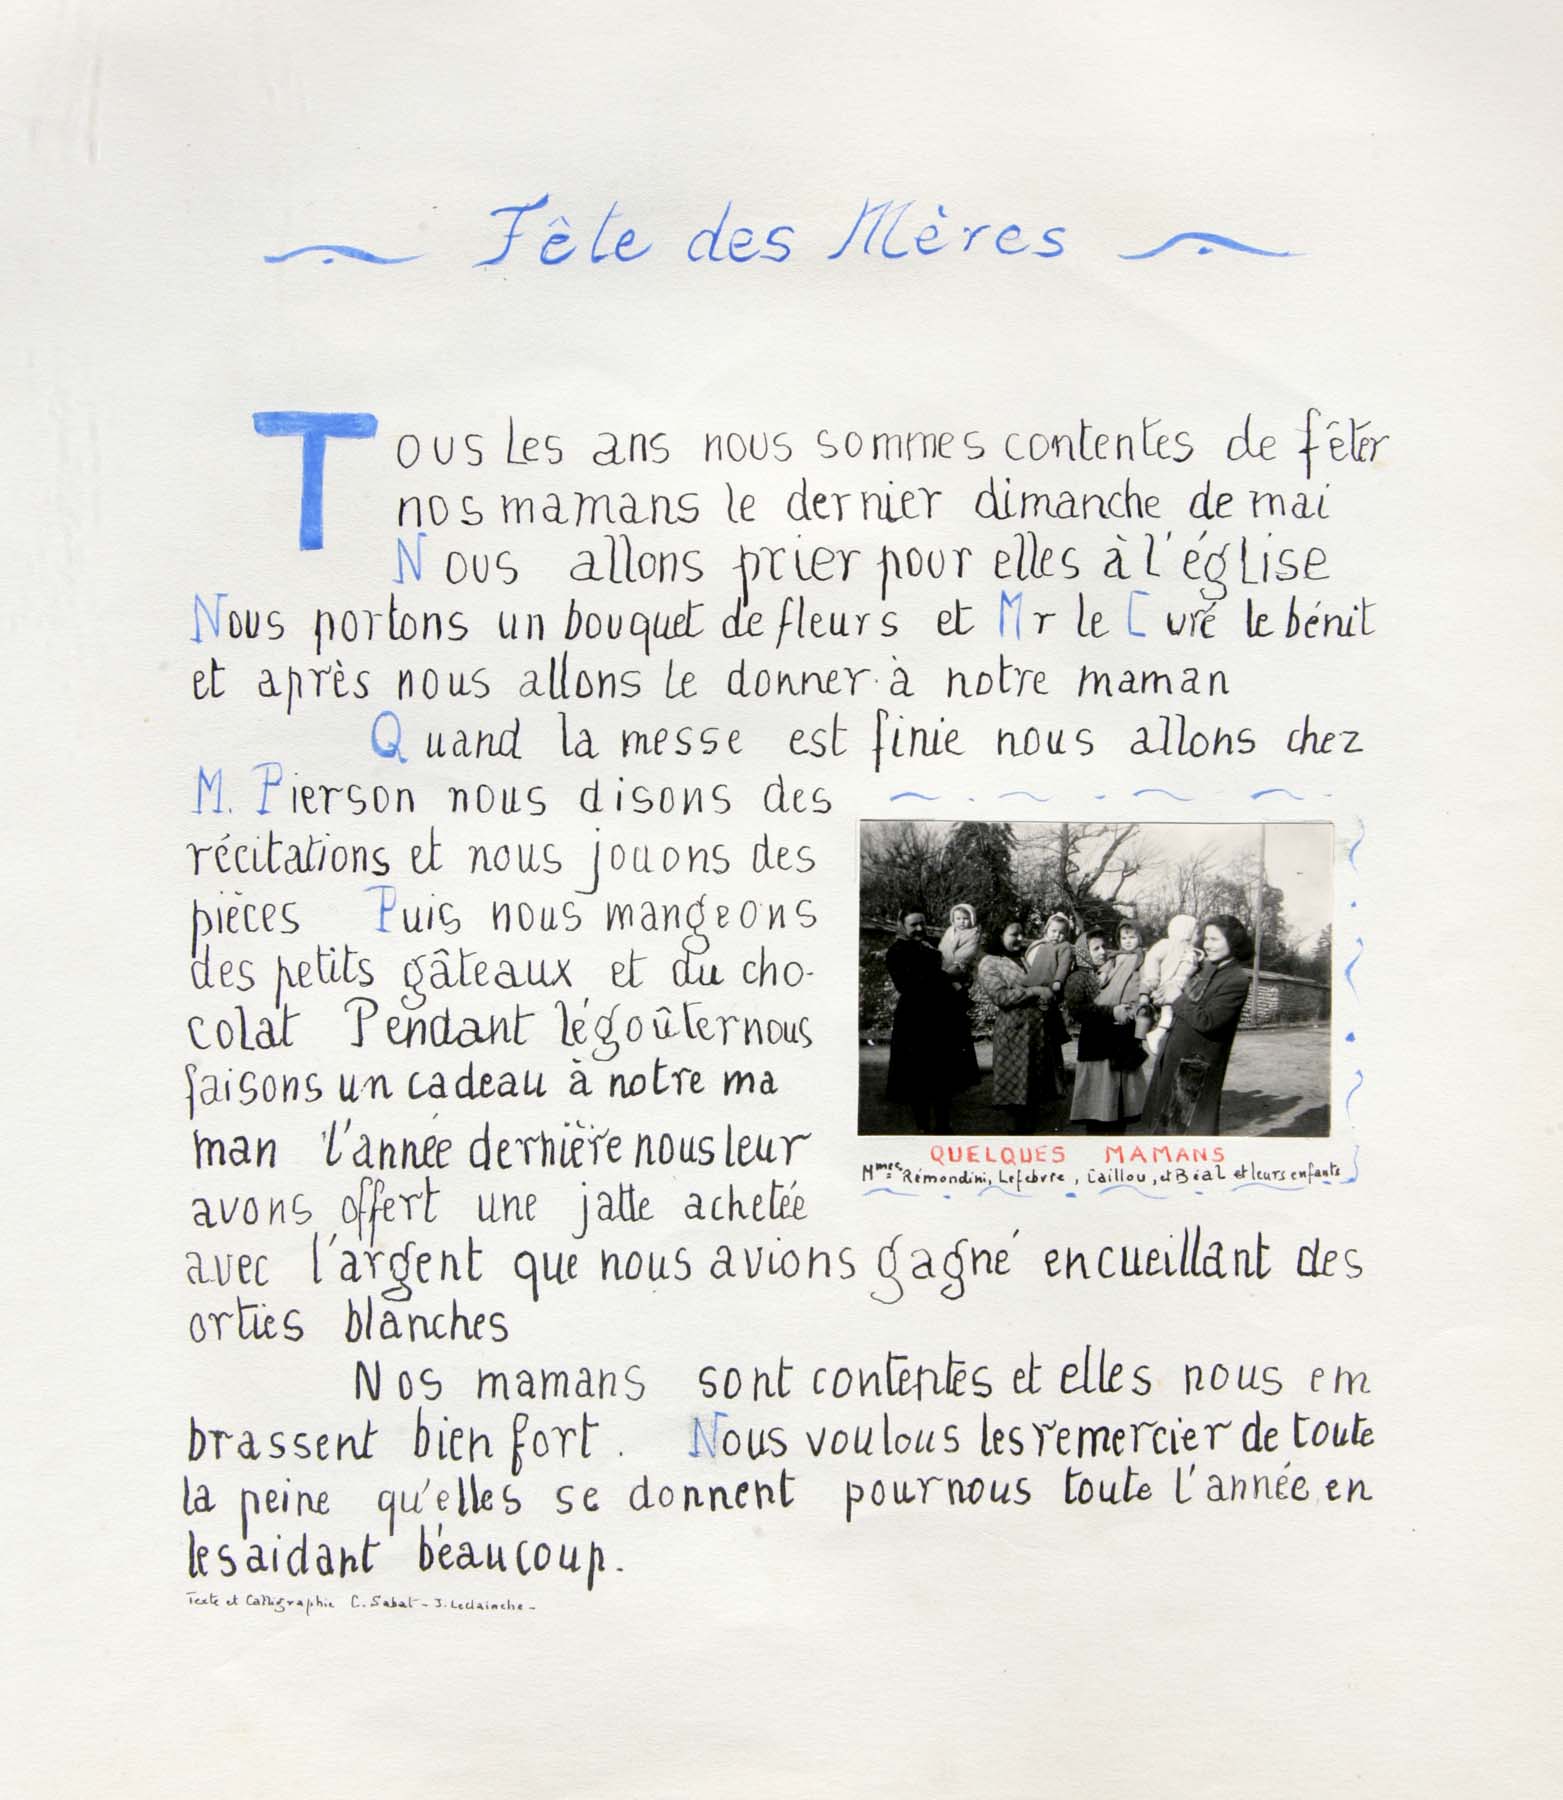 Fête des Mères
Tous les ans nous sommes contentes de fêter
nos mamans le dernier dimanche de mai
Nous allons prier pour elles à l'église
Nous portons un bouquet de fleurs et Mr le Curé le bénit
et après nous allons le donner à notre maman
Quand la messe est finie nous allons chez
M. Pierson nous disons des
récitations et nous jouons des
pièces Puis nous mangeons
des petits gâteaux et du cho-
colat Pendant légoûter nous
faisons un cadeau à notre ma
man l'année dernière nous leur
avons offert une jatte achetée
avec l'argent que nous avions gagné en cueillant des
orties blanches
Nos mamans sont contentes et elles nous em
brassent bien fort. Nous voulous les remercier de toute
la peine qu'elles se donnent pour nous toute l'année en
les aidant béaucoup.
Texte et Calligraphie C. Sabat - J. Leclainche -
QUELQUES MAMANS
Mmes Rémondini, Lefebvre, Caillou, et Béal et leurs enfants